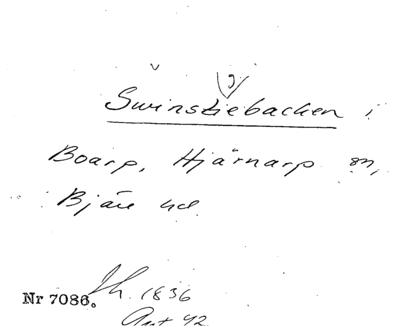 g
Swinstiebacken i
Boarp, Hjärnarp sn,
Bjäre hd.
Nr 7086. Lh. 1836
Avt 42